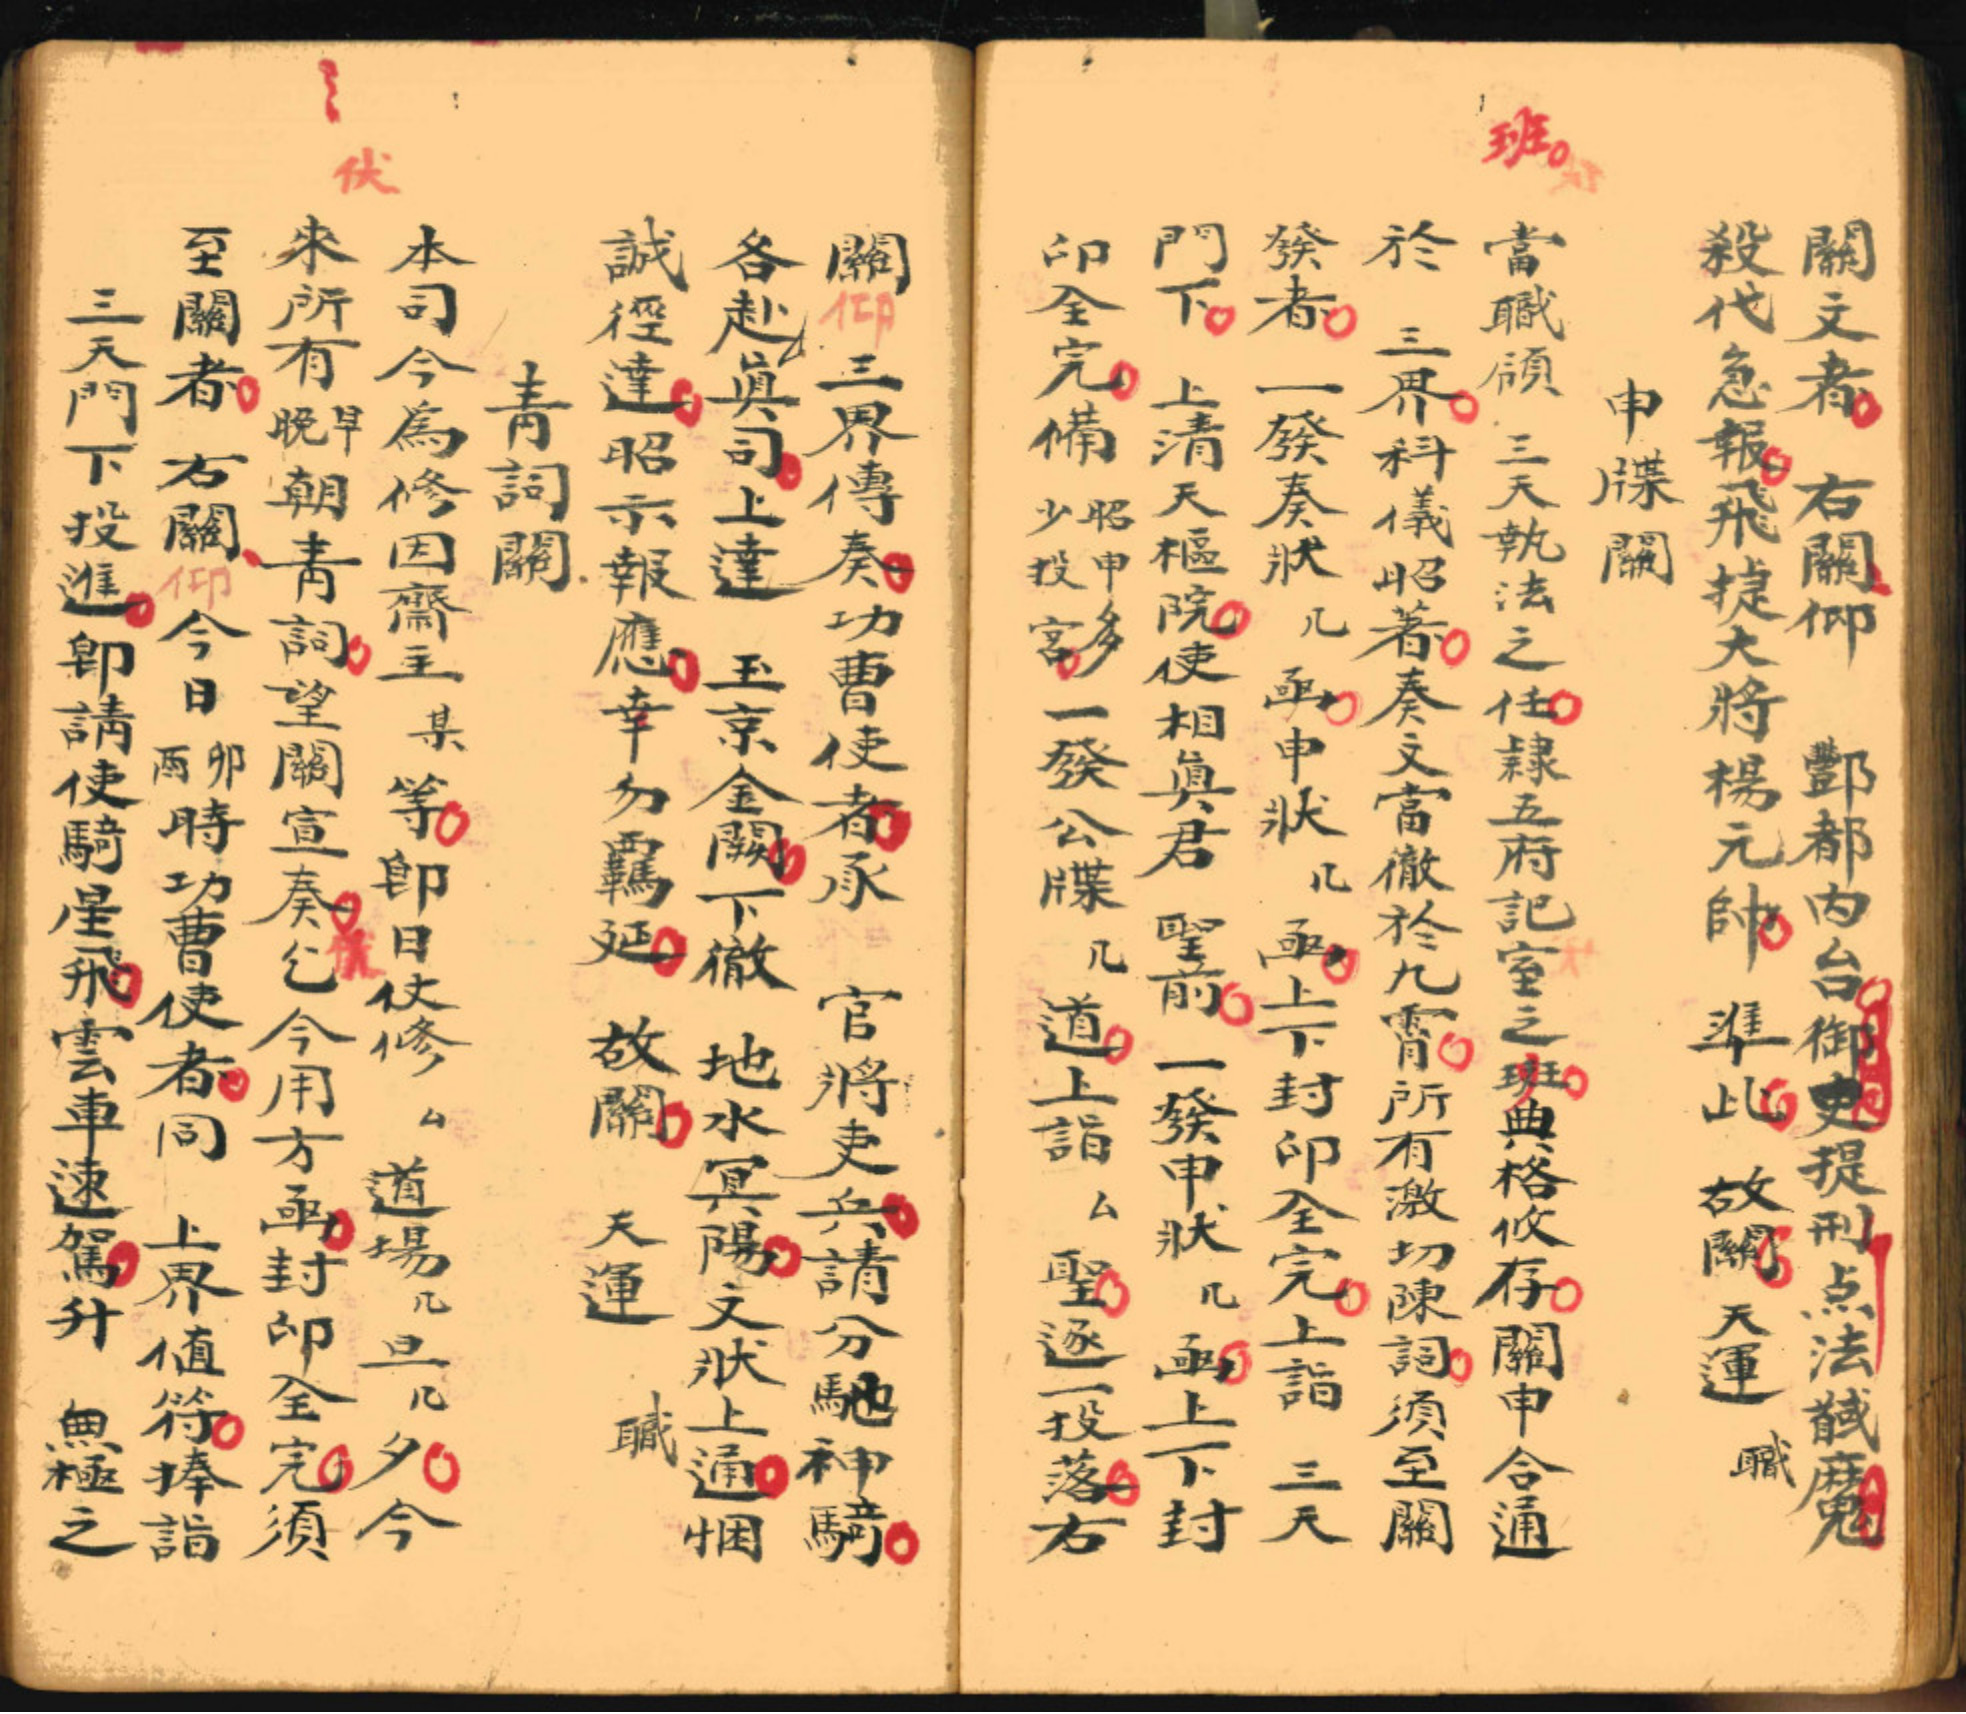 班
關文者　右關仰　酆都內台御史提刑点法馘魔
殺伐急報飛捷大將楊元帥　準此　故關　天運　職
申牒關
當職領　三天執法之任隸五府記室之班典格攸存關申合通
於　三界科儀昭著奏文當徹於九霄所有激切陳詞須至關
發者　一發奏狀　几　函申狀　几　函上下封印全完上詣　三天
門下　上清天樞院使相眞君　聖前　一發申狀　几　函上下封
印全完備　昭申多少投宮　一發公牒　几　道上詣　厶　聖逐一投落右
關仰　三界傳奏功曹使者承　官將吏兵請分馳神騎
各赴眞司上達　玉京金闕下徹　地水冥陽文狀上通悃
誠徑達昭示報應幸勿羈延　故關　天運　職
青詞關
伏
本司今為修因齋主　某　等即日伏修　厶　道場　几　旦　几　夕今
來所有早晚朝青詞望關宣奏伏乞今用方函封印全完須
至關者　右關仰今日卯酉時功曹使者同　上界值符捧詣
三天門下投進即請使騎星飛雲車速駕升　無極之